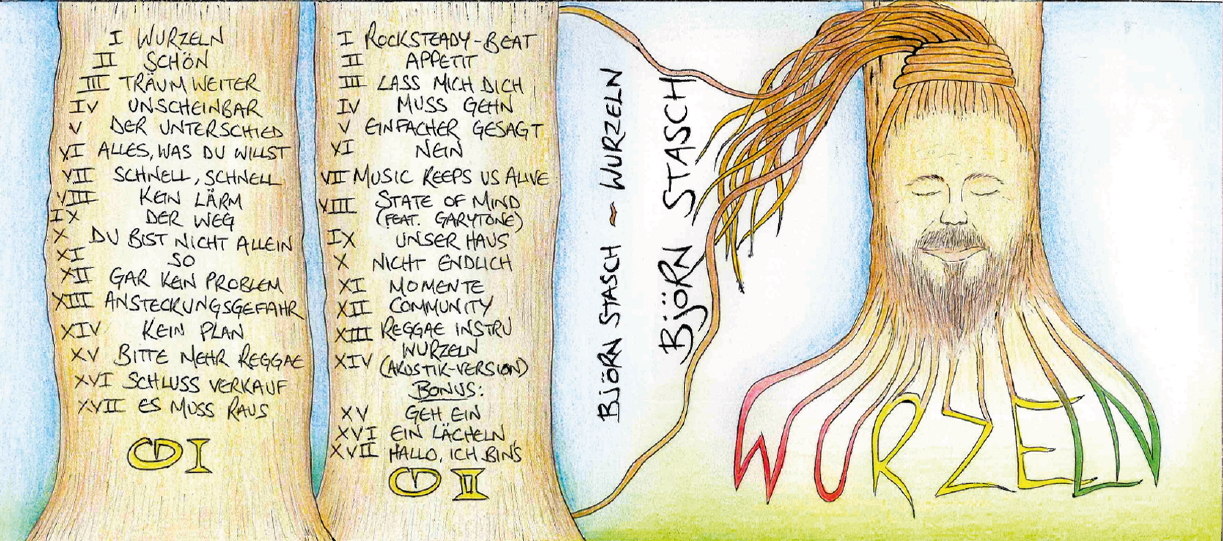 I WURZELN
II SCHÖN
III TRÄUM WEITER
IV UNSCHEINBAR
V DER UNTERSCHIED
VI ALLES, WAS DU WILLST
VII SCHNELL, SCHNELL
VIII KEIN LÄRM
IX DER WEG
X DU BIST NICHT ALLEIN
XI SO
XII GAR KEIN PROBLEM
XIII ANSTECKUNGSGEFAHR
XIV KEIN PLAN
XV BITTE MEHR REGGAE
XVI SCHLUSS VERKAUF
XVII ES MUSS RAUS
CD I
I ROCKSTEADY-BEAT
II APPETIT
III LASS MICH DICH
IV MUSS GEHN
V EINFACHER GESAGT
VI NEIN
VII MUSIC KEEPS US ALIVE
VIII STATE OF MIND
(FEAT. GARYTONE)
IX UNSER HAUS
X NICHT ENDLICH
XI MOMENTE
XII COMMUNITY
XIII REGGAE INSTRU
XIV WURZELN
(AKUSTIK-VERSION)
BONUS:
XV GEH EIN
XVI EIN LÄCHELN
XVII HALLO, ICH BIN'S
CD II
BJÖRN STASCH - WURZELN
BJÖRN STASCH
WURZELN